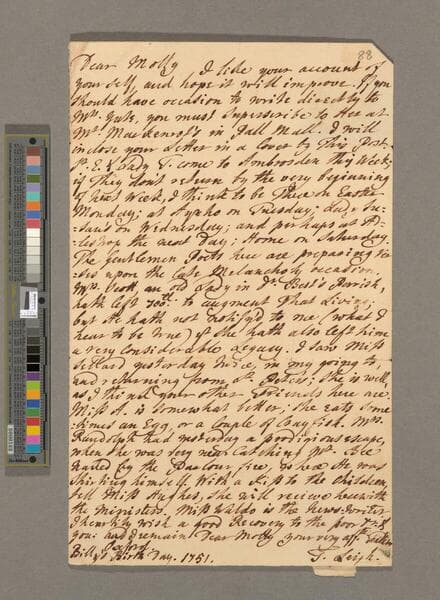 88
Dear Molly I like your account of
yourself, and hope it will improve. If you
should have occasion to write directly to
Mrs. you must Superscribe to Her at
Mr. Mackenroß's in Pall Mall. I will
inclose your Letter in a Cover by This Post.
Sr. E. & Lady T. come to Ambrosden this Week;
if They don't return by the very beginning
of next Week, I think to be There on Easter
Monday; at Aynho on Tuesday;
on Wednesday; and perhaps at Ad-
lestrop the next Day; Home on Saturday.
The Gentlemen Poets here are preparing Ver-
ses upon the late Melancholy occasion.
Mrs. an old Lady in Dr. Best's Parish,
hath left 700ll: to augment That Living;
but He hath not notify'd to me (what I
hear to be true) yt She hath also left him
a very considerable Legacy. I saw Miss
yesterday twice, in my going to,
and returning from St. She is well,
as I think your other Friends here are.
Miß A. is somewhat better; She eats some-
times an Egg, or a Couple of Cray fish. Mrs.
Randolph had yesterday a prodigious escape,
when She was very near Catching Mr.
naked by the Parlour fire, where He was
shirting himself. With a Kiß to the Children,
tell Miß Hughes, She will receive herewith
the Ministers. Miß Waldo is the News-writer.
I heartily wish a good Recovery to the poor
you: and remain Dear Molly your very aff:
Oxford
Billy's Birth Day. 1751. T. Leigh.